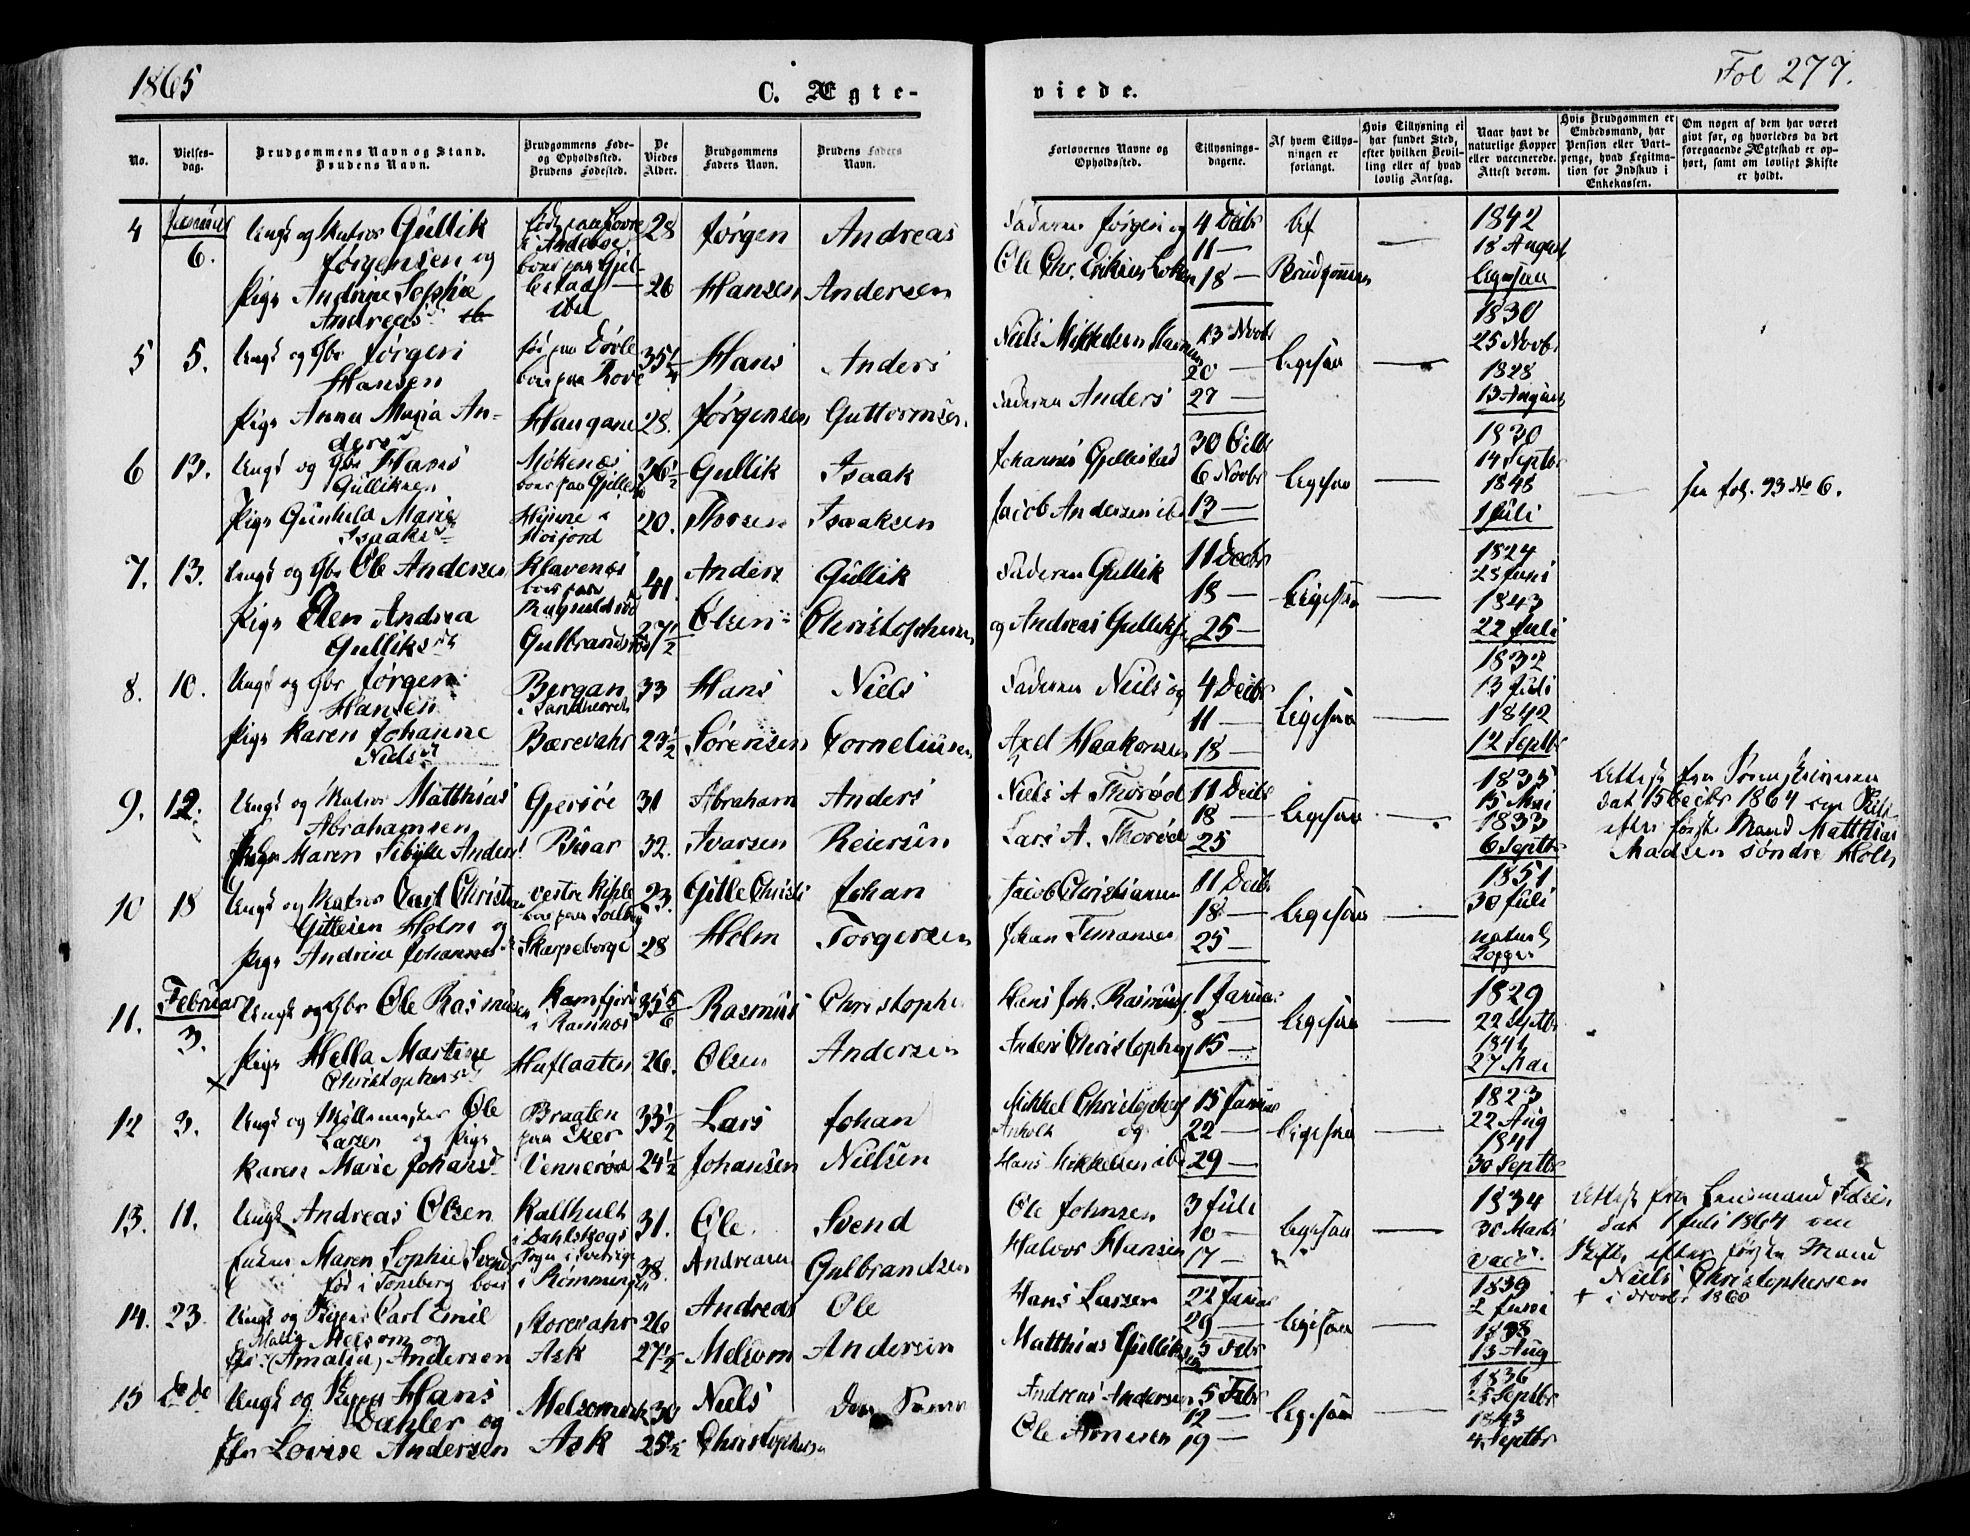 1865
C. Ægte-
viede.
Fol 277.
No.
Vielses-
dag.
Brudgommens Navn og Stand.
Brudens Navn.
Brudgommens Føde-
og Opholdssted.
Brudens Fødested.
De
Viedes
Alder.
Brudgommens
Faders Navn.
Brudens Faders
Navn.
Forlovernes Navne og
Opholdssted.
Tillysnings-
dagene.
Af hvem Tillys-
ningen er
forlangt.
Hvis Tillysning ei
har fundet Sted,
efter hvilken Bevil-
ling eller af hvad
lovlig Aarsag.
Naar havt de
naturlige Kopper
eller vaccinerede.
Attest derom.
Hvis Brudgommen er
Embedsmand, har
Pension eller Vart-
penge, hvad Legitima-
tion for Indskud i
Enkekassen.
Om nogen af dem har været
gift før, og hvorledes da det
foregaaende Ægteskab er op-
hørt, samt om lovligt Skifte
er holdt.
4
6.
Ungk og Matros Gullik
Jørgensen og
Pige Andrine Sophie
Andreasd.
28
26
Jørgen
Hansen
Andreas
Andersen
Faderen Jørgen og
Ole Chr.
4 Decbr
11 —
18 —
Af
Brudgommen
1842
18 August
Ligesaa
5
5.
Ungk og Gbr Jørgen
Hansen
Pige Anna Maria An-
ders
Haugane
28.
Hans
Jørgensen
Anders
Guttormsen
Niels Mikkelsen
Faderen Anders
13 Novbr
20 —
27 —
Ligesaa
1830
25 Novbr
1828
13 August
6
13.
Ungk og Gbr Hans
Gulliksen
Pige Gunhild Marie
Isaaks
36½
20.
Gullik
Thorsen
Isaak
Isaaksen
Johannes Gjellestad
Jacob Andersen ibd
30 Octbr
6 Novbr
13 —
Ligesaa
1830
14 Septbr
1845
1 Juli
se fol. 93 No 6.
7.
13.
Ungk og Gbr Ole Andersen
Pige Elen Andrea
Gulliksd
Klavenæs
41.
27½
Anders
Olsen
Gullik
Christophersen
Faderen Gullik
og Andreas Gulliks
11 Decbr
18 —
25 —
Ligesaa
1824
23 Juni
1843
22 Juli
8.
10.
Ungk og Gbr Jørgen
Hansen
Pige Karen Johanne
Nielsd
Bergan
i Sandherred
Bærevahr
33
23½
Hans
Sørensen
Niels
Corneliusen
Faderen Niels og
Axel Haakonsen
4 Decbr
11 —
18 —
Ligesaa
1832
13 Juli
1842
12 Septbr
9.
12.
Ungk og Matros Matthias
Abrahamsen
Maren Sibylle Anders
Gjersøe
31
32.
Abraham
Ivarsen
Anders
Reiersen
Niels A Thorød
Lars A. Thorød
11 Decbr
18 —
25
Ligesaa
1835
15 Mai
1833
6 Septbr
dat 15 Decbr 1864 om Skifte
efter første Mand Matthias
Madsen søndre Holt
10
18
Ungk og Matros Carl Christian
Gittesen Holm og
Pige Andrine Johannes
Skarpeborge
23.
28
Gitle Christi
Holm
Johan
Torgersen
Jacob Christiansen
Johan
11 Decbr
18 —
25 —
Ligesaa
1851
30 Juli
naturl
Kopper
11.
Februar
3.
Ungk og Gbr Ole Rasmussen
Pige Hella Martine
Christophersd
i Ramnæs
Huflaaten
35⅚
26.
Rasmus
Olsen
Christophe
Andersen
Hans Joh. Rasmuss.
Anders Christophers
1 Januar
8 —
15 —
Ligesaa
1829
22 Septbr
1841
27 Mai
12
3.
Ungk og Møllemester Ole
Larsen og Pige
Karen Marie Johansd
Braaten
paa Eker
Vennerøe
33½
24½
Lars
Johansen
Johan
Nielsen
Mikkel Christophers
Anholt og
Hans Mikkelsen ibd
15 Januar
22 —
29 —
Ligesaa
1823
22 Aug
1841
30 Septbr
13.
11.
Ungk Andreas Olsen
Enken Maren Sophie Svends
fød i Tønsberg boer
Kallhult
i Dahlskogs
Sogn i Sverige
i Rømmingen
31.
38.
Ole
Andreasen
Svend
Gulbrandsen
Ole Johnsen
Halvor Hansen
3 Juli
10 —
17 —
Ligesaa
1834
30 Marts
vacc.
Attest fra Lensmand
dat 1 Juli 1864 om
Skifte efter første Mand
Niels Christophersen
+ i Novbr 1860
14.
23.
Ungk og Skipper Carl Emil
Melsom og
(Amalia) Andersen
Storevahr
Ask
26
27½
Andreas
Melsom
Ole
Andersen
Hans Larsen
Matthias Gulliksen
22 Januar
29 —
5 Febr
Ligesaa
1839
2 Juni
1838
13 Aug
15
do do
Ungk og Skipper Hans
Dahler og
Lovise Andersen
Ask
30
25½
Niels
Christophersen
Den Samme
Andreas Andersen
Ole Arnesen
5 Febr
12 —
19 —
Ligesaa
1836
25 Septbr
1843
4 Septbr